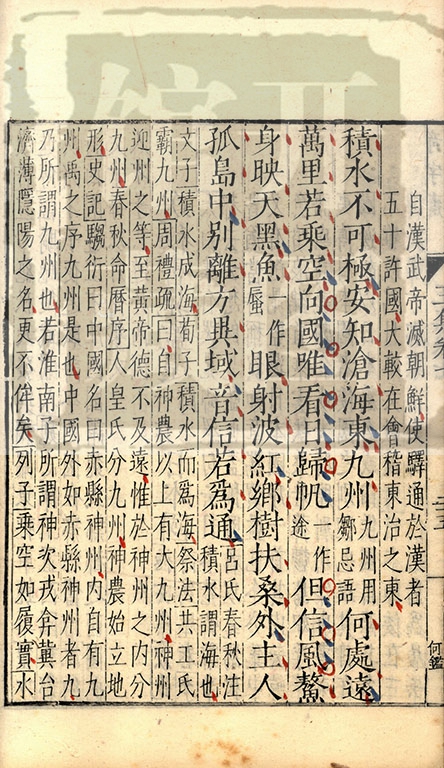 自漢武帝滅朝鮮使驛通於漢者
五十許國大較在會稽東治之東
積水不可極安知滄海東九州九州用鄒忌語何處遠
萬里若乘空向國唯看日歸帆一作途但信風鰲
身映天黑魚一作蜃眼射波紅鄉樹扶桑外主人
孤島中別離方異域音信若爲通呂氏春秋注積水謂海也
文子積水成海荀子積水而爲海祭法共工氏
霸九州周禮疏曰自神農以上有大九州神州
迎州之等至黃帝德不及遠惟於神州之內分
九州春秋命曆序人皇氏分九州神農始立地
形史記騶衍曰中國名曰赤縣神州內自有九
州禹之序九州是也中國外如赤縣神州者九
乃所謂九州也若淮南子所謂神次戎弇冀台
濟薄隱陽之名更不侔矣列子乘空如履實水
何鑑